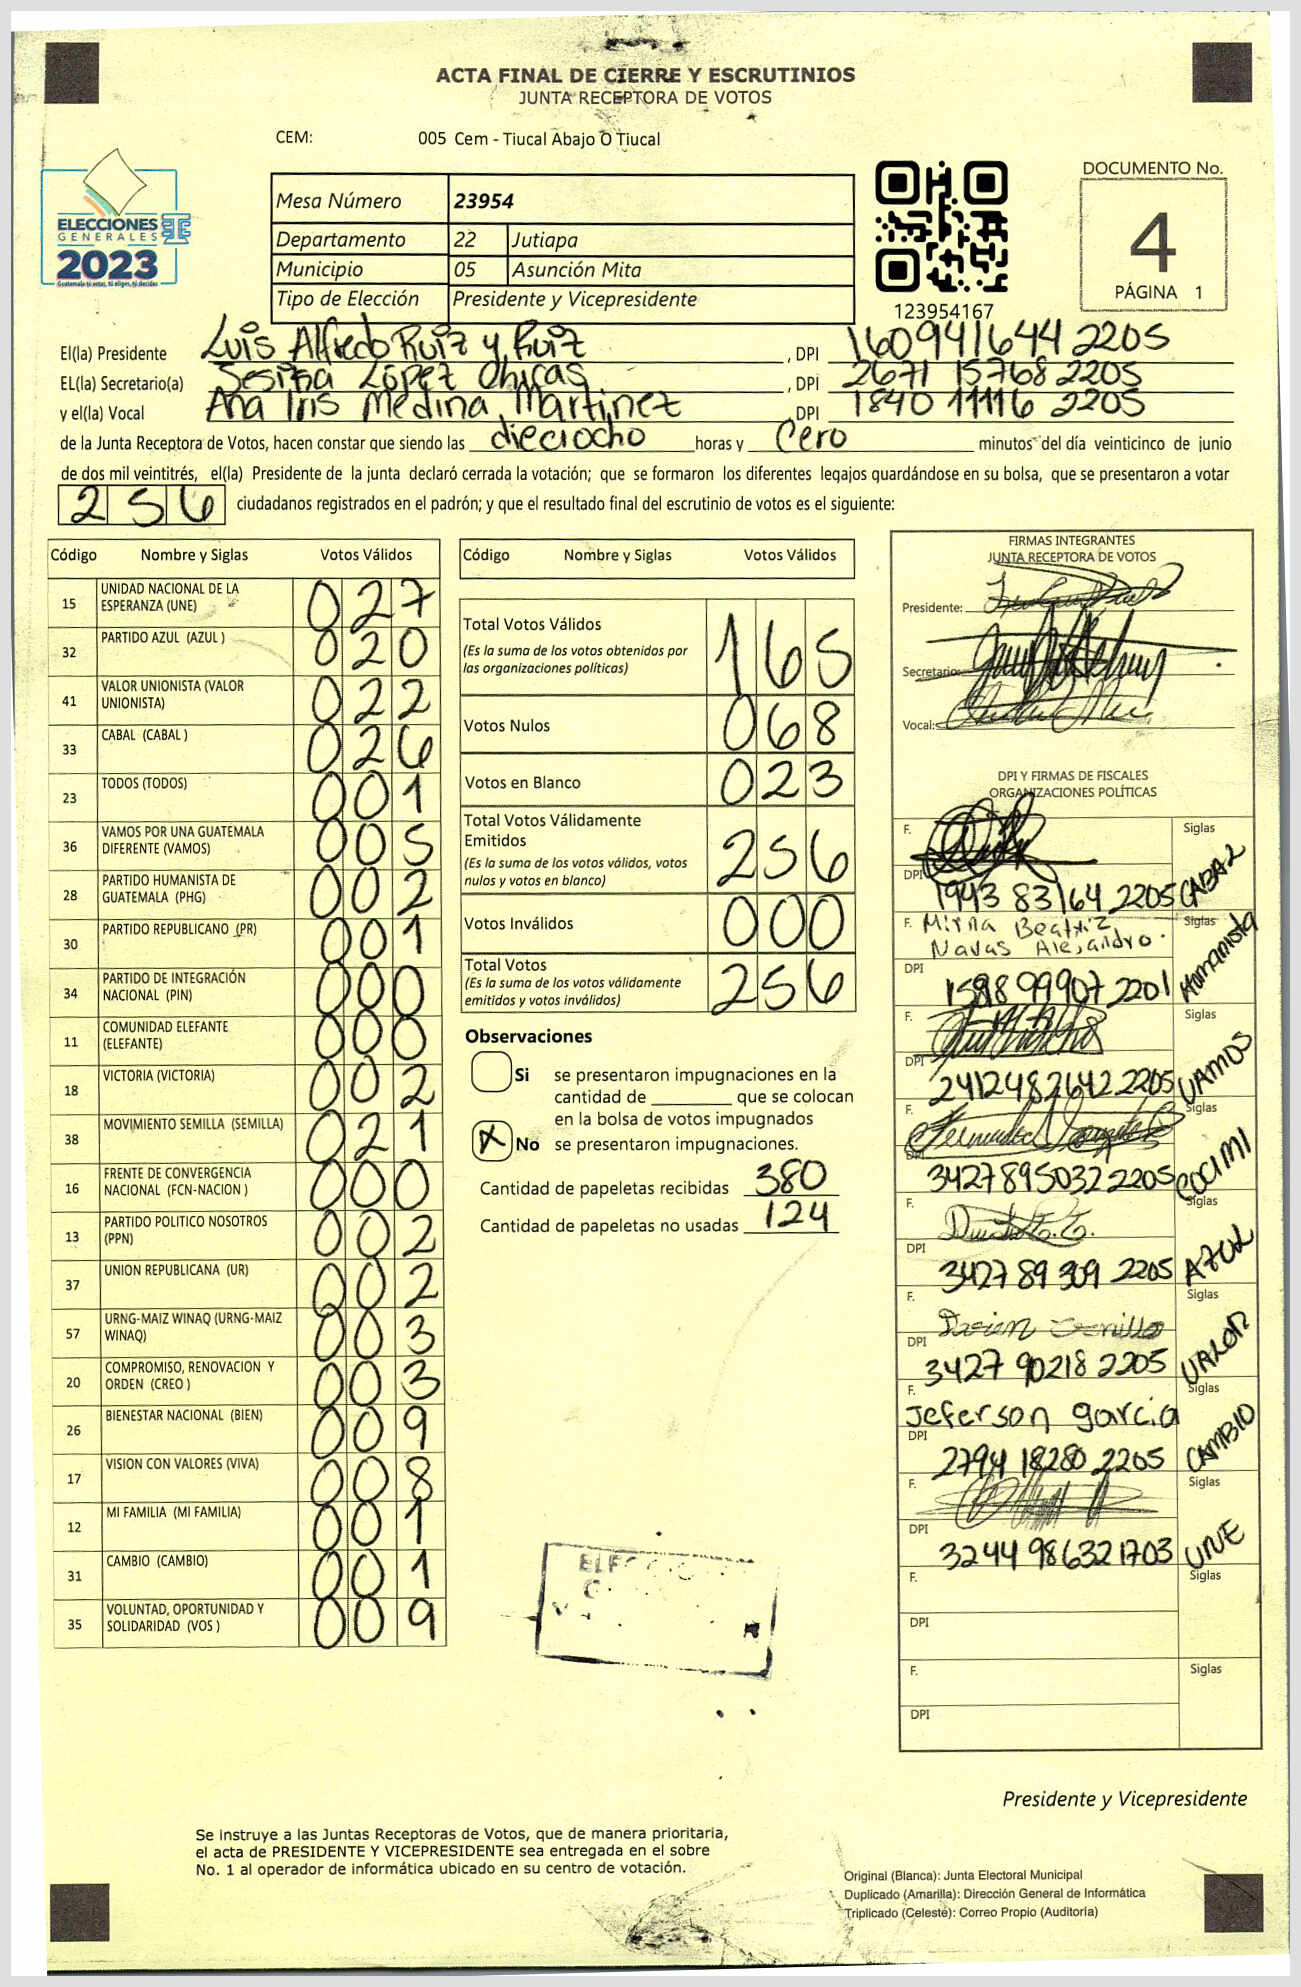 ACTA FINAL DE CIERRE Y ESCRUTINIOS
JUNTA RECEPTORA DE VOTOS
CEM: 005 Cem - Tiucal Abajo O Tiucal
ELECCIONES
GENERALES
2023
Guatemala tú votas, tú eliges, tú decides
Mesa Número 23954
Departamento 22 Jutiapa
Municipio 05 Asunción Mita
Tipo de Elección Presidente y Vicepresidente
123954167
DOCUMENTO No.
4
PÁGINA 1
El(la) Presidente Luis Alfredo Ruiz y Ruiz , DPI 1609416442205
EL(la) Secretario(a) López Chicas , DPI 2671 15768 2205
y el(la) Vocal Ana Iris Medina Martinez , DPI 1840 11116 2205
de la Junta Receptora de Votos, hacen constar que siendo las dieciocho horas y Cero minutos del día veinticinco de junio
de dos mil veintitrés, el(la) Presidente de la junta declaró cerrada la votación; que se formaron los diferentes legajos guardándose en su bolsa, que se presentaron a votar
256 ciudadanos registrados en el padrón; y que el resultado final del escrutinio de votos es el siguiente:
Código Nombre y Siglas Votos Válidos
15 UNIDAD NACIONAL DE LA ESPERANZA (UNE) 027
32 PARTIDO AZUL (AZUL ) 020
41 VALOR UNIONISTA (VALOR UNIONISTA) 022
33 CABAL (CABAL ) 026
23 TODOS (TODOS) 001
36 VAMOS POR UNA GUATEMALA DIFERENTE (VAMOS) 005
28 PARTIDO HUMANISTA DE GUATEMALA (PHG) 002
30 PARTIDO REPUBLICANO (PR) 001
34 PARTIDO DE INTEGRACIÓN NACIONAL (PIN) 000
11 COMUNIDAD ELEFANTE (ELEFANTE) 000
18 VICTORIA (VICTORIA) 002
38 MOVIMIENTO SEMILLA (SEMILLA) 021
16 FRENTE DE CONVERGENCIA NACIONAL (FCN-NACION ) 000
13 PARTIDO POLITICO NOSOTROS (PPN) 002
37 UNION REPUBLICANA (UR) 002
57 URNG-MAIZ WINAQ (URNG-MAIZ WINAQ) 003
20 COMPROMISO, RENOVACION Y ORDEN (CREO ) 003
26 BIENESTAR NACIONAL (BIEN) 009
17 VISION CON VALORES (VIVA) 008
12 MI FAMILIA (MI FAMILIA) 001
31 CAMBIO (CAMBIO) 001
35 VOLUNTAD, OPORTUNIDAD Y SOLIDARIDAD (VOS ) 009
Código Nombre y Siglas Votos Válidos
Total Votos Válidos 165
(Es la suma de los votos obtenidos por
las organizaciones políticas)
Votos Nulos 068
Votos en Blanco 023
Total Votos Válidamente
Emitidos 256
(Es la suma de los votos válidos, votos
nulos y votos en blanco)
Votos Inválidos 000
Total Votos 256
(Es la suma de los votos válidamente
emitidos y votos inválidos)
Observaciones
Si se presentaron impugnaciones en la
cantidad de ________ que se colocan
en la bolsa de votos impugnados
X No se presentaron impugnaciones.
Cantidad de papeletas recibidas 380
Cantidad de papeletas no usadas 124
FIRMAS INTEGRANTES
JUNTA RECEPTORA DE VOTOS
Presidente:
Secretario:
Vocal:
DPI Y FIRMAS DE FISCALES
ORGANIZACIONES POLÍTICAS
F. Siglas
DPI 1943 83164 2205 CABAL
F. Mirna Beatriz Siglas
Navas Alejandro.
DPI 1598 99907 2201 Humanista
F. Siglas
DPI 2412482642 2205 VAMOS
F. Siglas
DPI 3427895032 2205
F. Siglas
DPI 3427 89 309 2205 AZUL
F. Siglas
DPI 3427 90218 2205 VALOR
F. Jeferson garcia Siglas
DPI 2794 18280 2205 CAMBIO
F. Siglas
DPI 3244 986321703 UNE
F. Siglas
DPI
F. Siglas
DPI
Presidente y Vicepresidente
Se instruye a las Juntas Receptoras de Votos, que de manera prioritaria,
el acta de PRESIDENTE Y VICEPRESIDENTE sea entregada en el sobre
No. 1 al operador de informática ubicado en su centro de votación.
Original (Blanca): Junta Electoral Municipal
Duplicado (Amarilla): Dirección General de Informática
Triplicado (Celeste): Correo Propio (Auditoría)